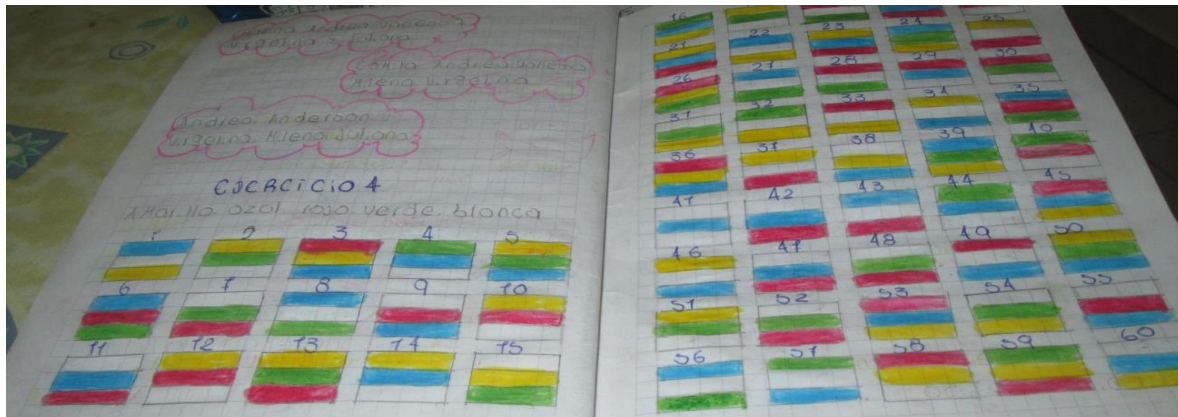 Milena Andrea Vanessa
Virgelina y Juliana
Camila Andrea Vanessa
Milena Virgelina
Andrea Anderson y
Virgelina Milena Juliana
EJERCICIO 4
Amarillo azul rojo verde blanca
1 2 3 4 5
6 7 8 9 10
11 12 13 14 15
16
21 22 23 24 25
26 27 28 29 30
31 32 33 34 35
36 37 38 39 40
41 42 43 44 45
46 47 48 49 50
51 52 53 54 55
56 57 58 59 60